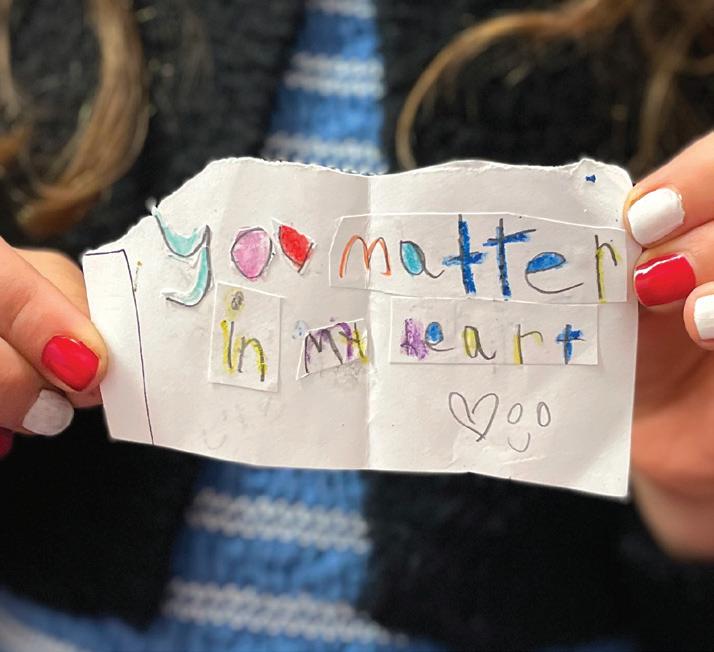 you matter
in my heart